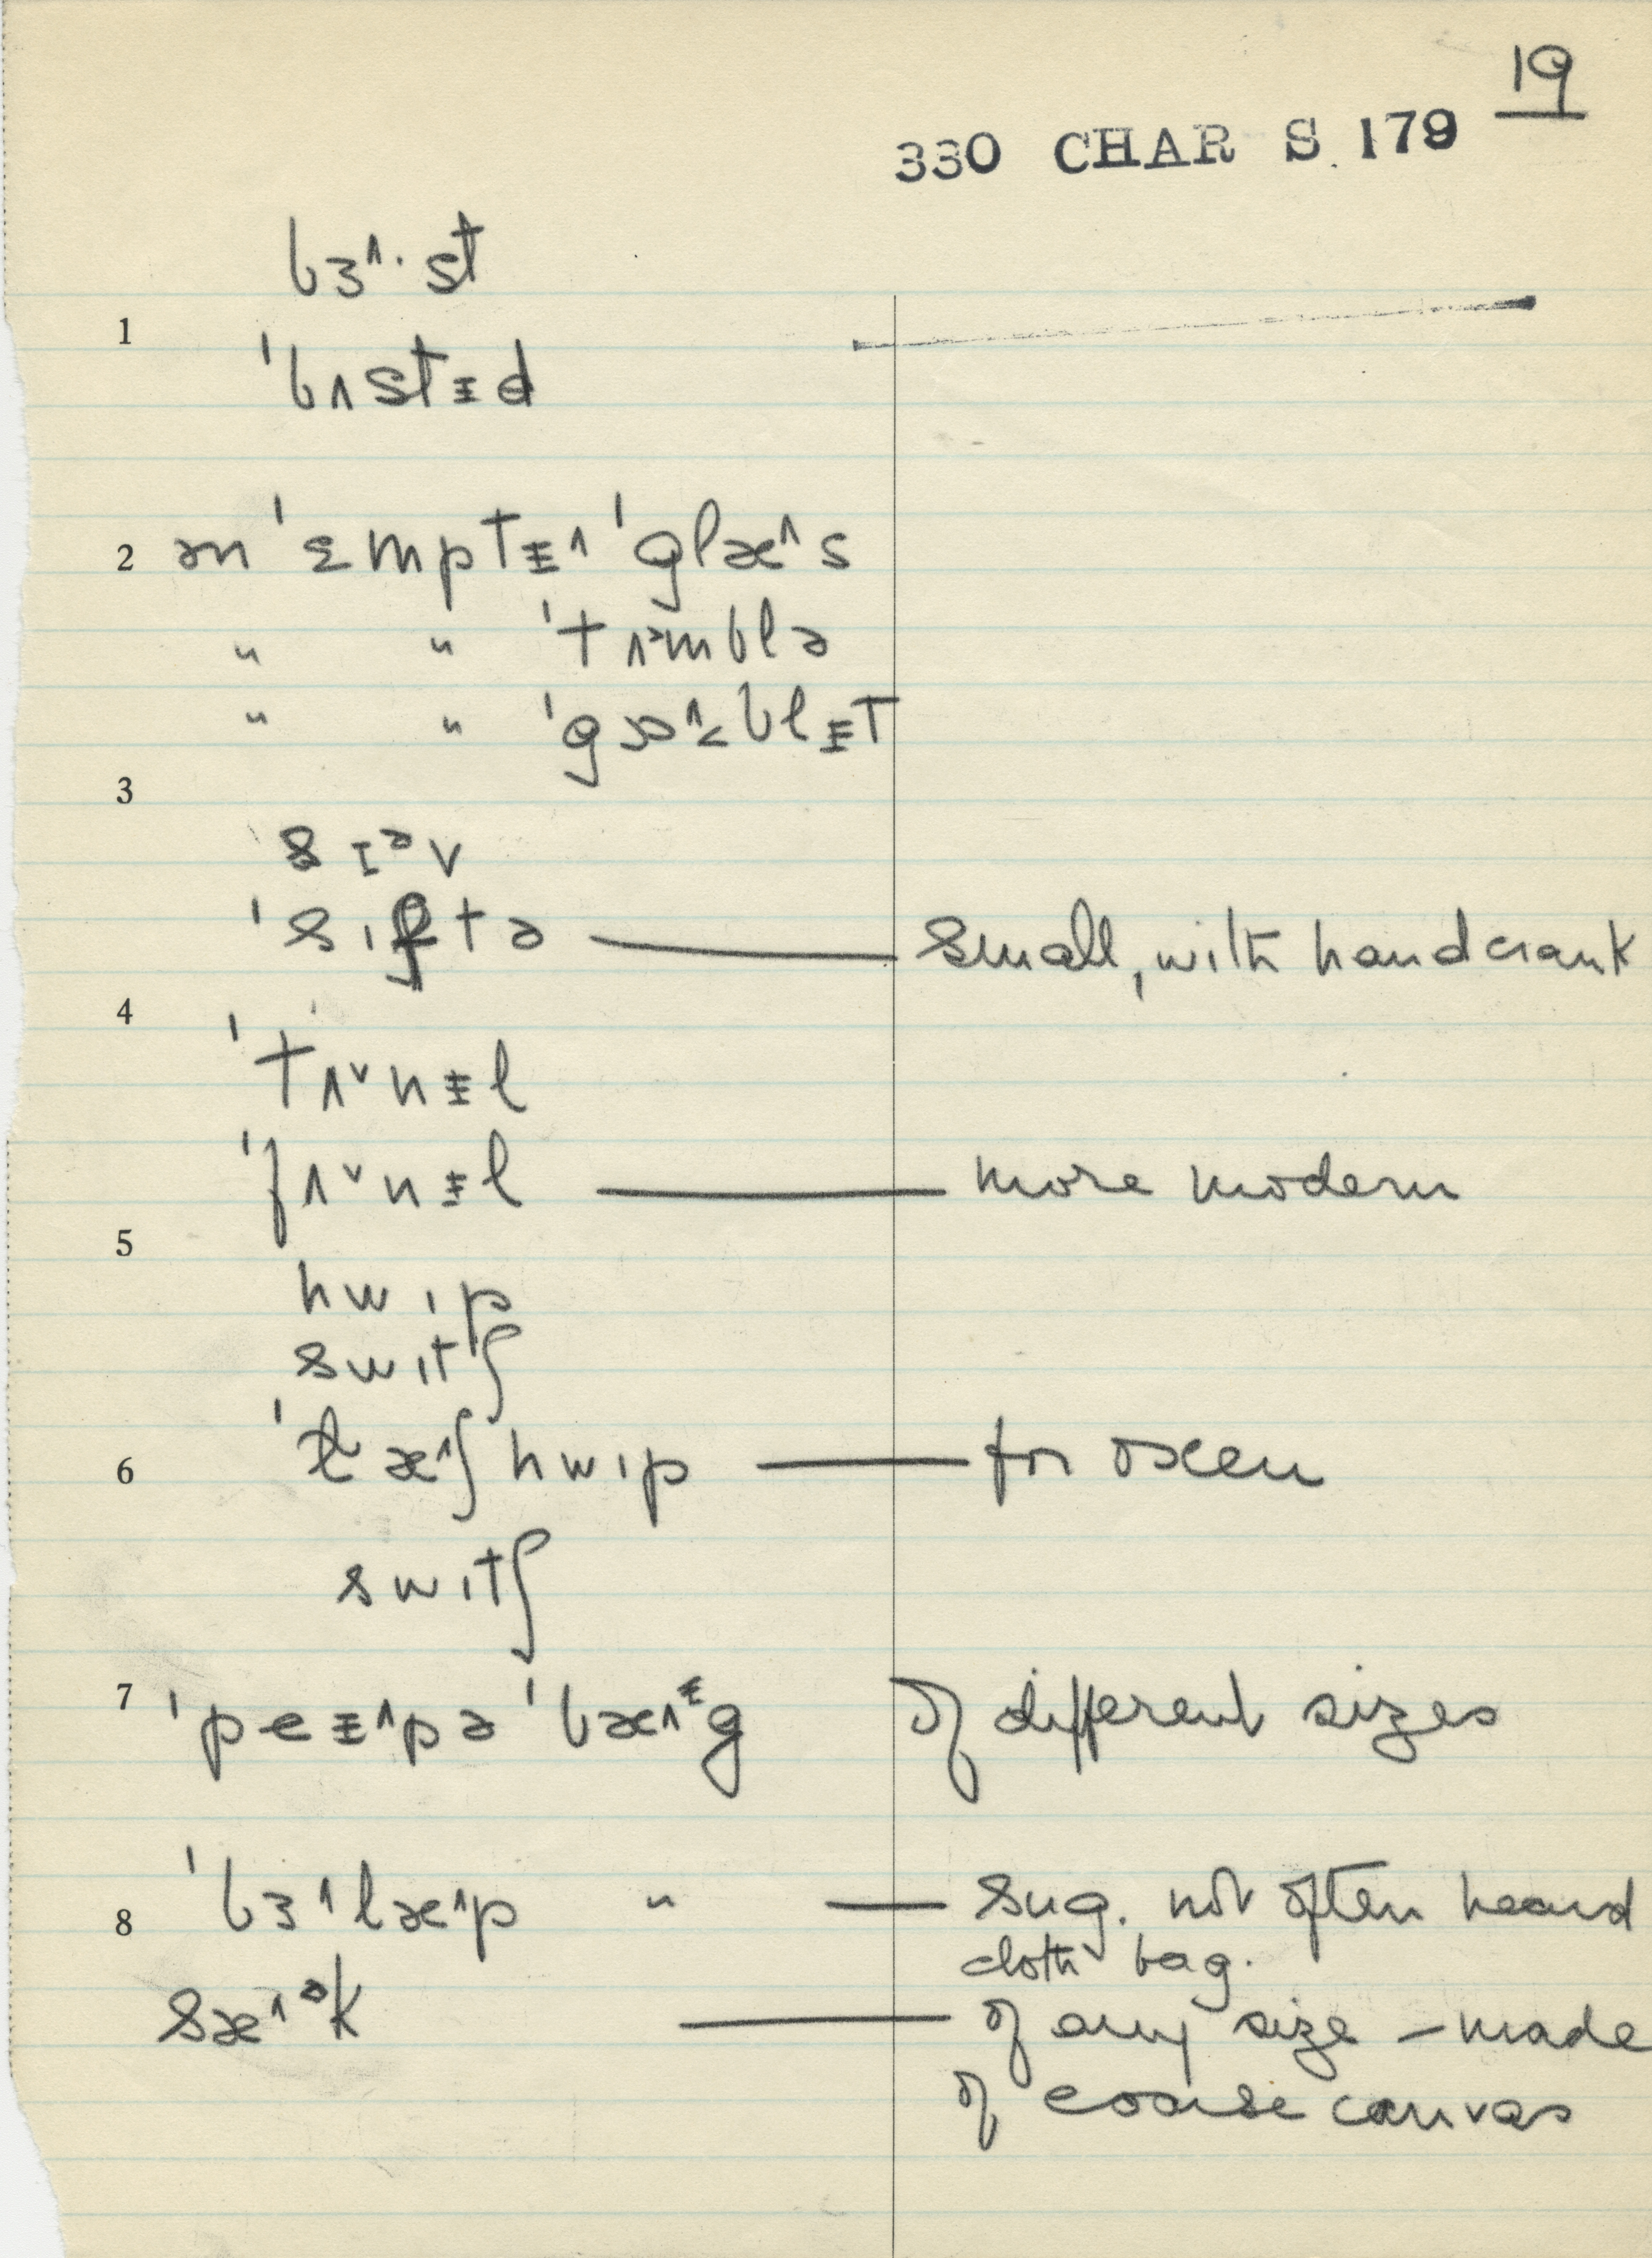 19
330 CHAR S. 179
bɜ˄· st
1
ˈbʌstɪ̵d
2 ən ˈɛmptɪ̵˄ ˈglæ˄s
" " ˈtʌᵊmblə
" " ˈgɒ˄˂blɪ̵t
3
sɪᵊv
ˈsɪftə — small, with handcrank
4
ˈtʌ˅nɪ̵l
ˈfʌ˅nɪ̵l — more modern
5
hwɪp
swɪtʃ
6 ˈlæ˄ʃhwɪp — for oxen
swɪtʃ
7 ˈpeɪ̵˄pə ˈbæ˄ᵻg of different sizes
8 ˈbɜ˄læ˄p " — sug. not often heard
cloth bag.
sæ˄ᵊk — of any size – made
of coarse canvas